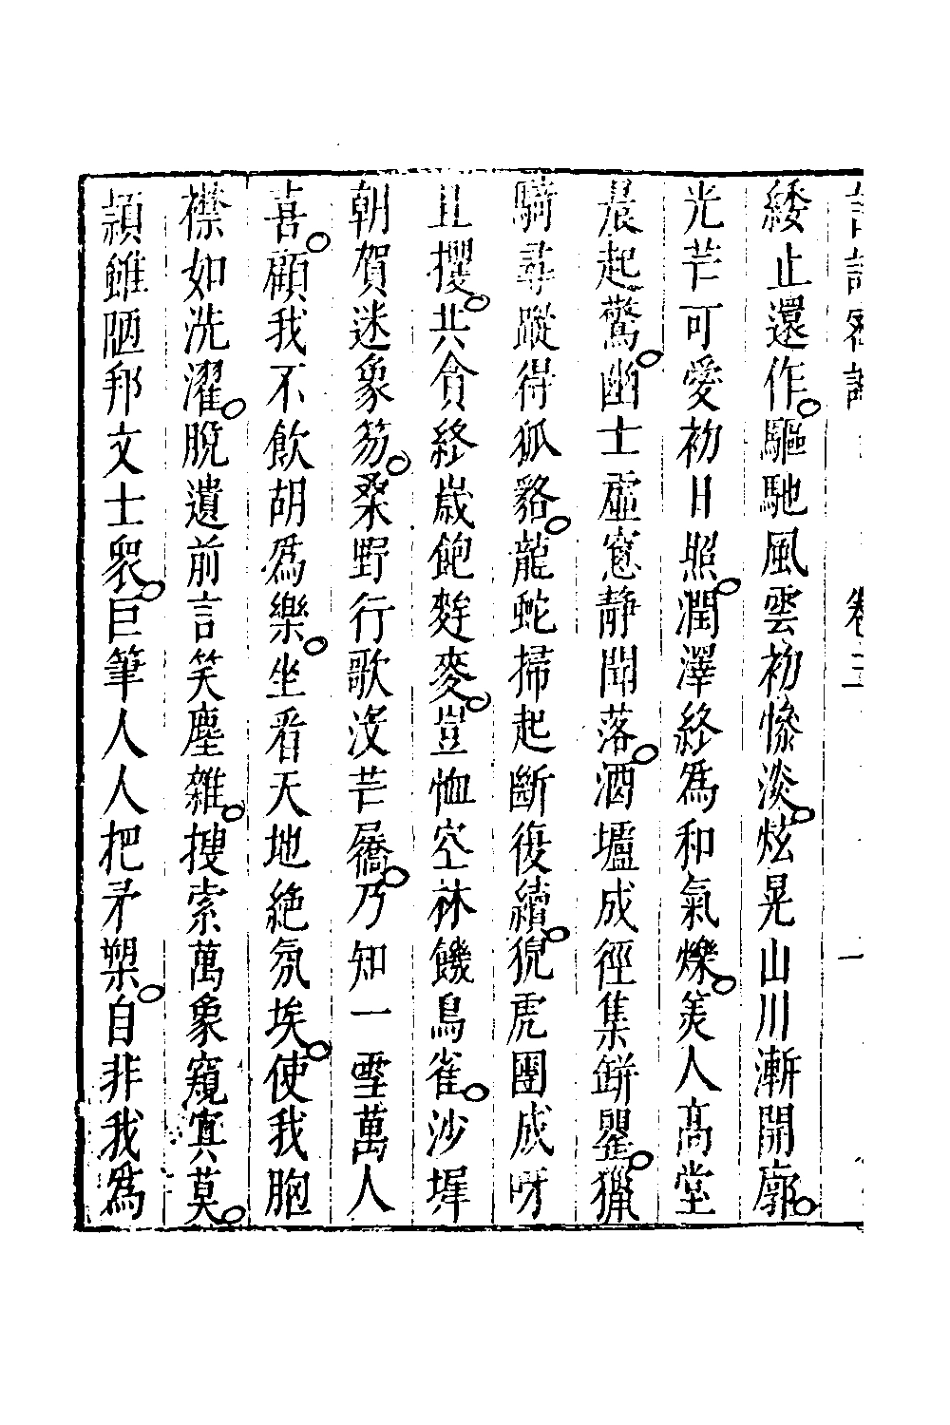 緌止還作驅馳風雲初慘淡炫晃山川漸開廓
光芒可愛初日照潤澤終爲和氣爍美人高堂
晨起驚幽士虛窻靜聞落酒壚成徑集缾罌獵
騎尋蹤得狐貉龍蛇掃起斷復續猊虎團成呀
且攫共貪終歲飽麰麥豈恤空林饑鳥雀沙墀
朝賀迷象笏桑野行歌沒芒屩乃知一雪萬人
喜顧我不飲胡爲樂坐看天地絶氛埃使我胸
襟如洗濯脫遺前言笑塵雜搜索萬象窺冥莫
頴雖陋邦文士衆巨筆人人把矛槊自非我爲